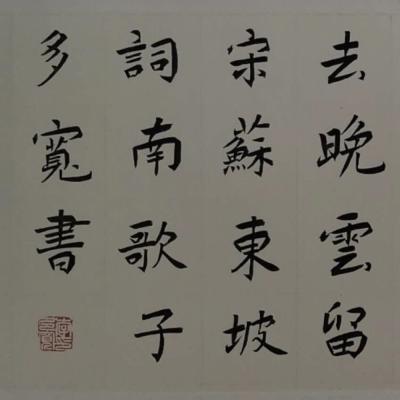 去晚雲留
宋蘇東坡
詞南歌子
多寬書